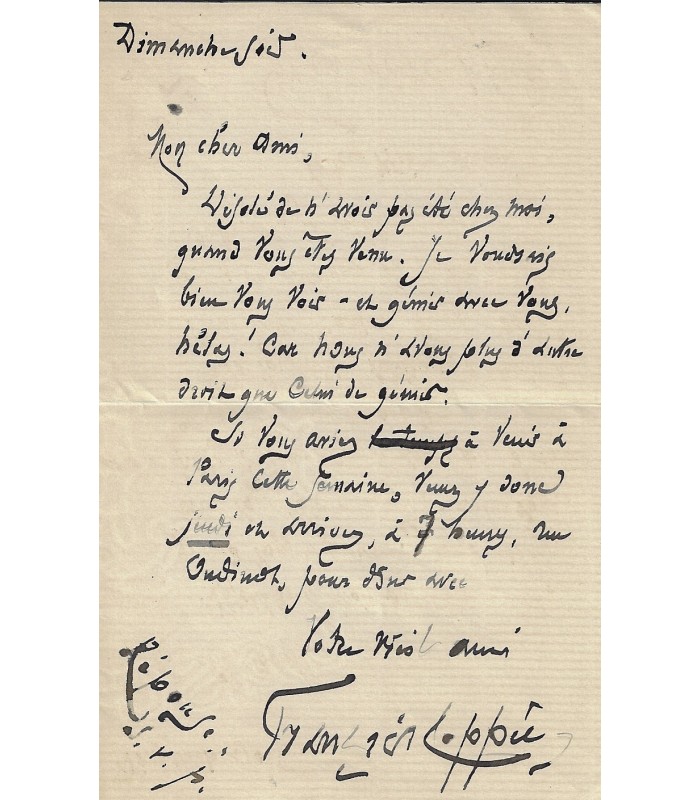 Dimanche soir.
Mon cher Ami,
Désolé de n'avoir pas été chez moi,
quand vous êtes venu. Je voudrais
bien vous voir - et gémir avec vous,
hélas! Car nous n'avons plus d'autre
droit que celui de gémir.
Si vous aviez le temps à venir à
Paris cette semaine, venez y donc
jeudi et arrivez, à 7 heures, rue
Oudinot, pour dîner avec
Votre vieil ami
François Coppée
Réponse
s. v. p.